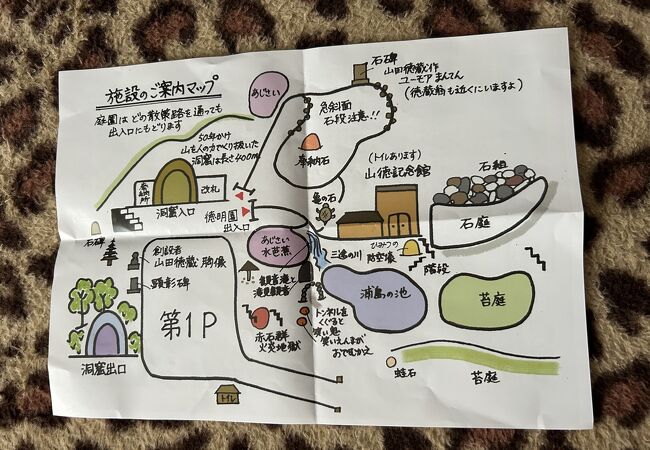 施設のご案内マップ
庭園はどの散策路を通っても
出入口にもどります
50年かけ
山を人の力でくり抜いた
洞窟は長さ400m
あじさい
急斜面
石段注意!!
奉納石
石碑
山田徳蔵作
ユーモアまんてん
(徳蔵翁も近くにいますよ)
(トイレあります)
山徳記念館
石組
石庭
奉納所
改札
洞窟入口
徳明園
出入口
亀の石
石碑
創設者
山田徳蔵胸像
顕彰碑
第1P
あじさい
水芭蕉
三途の川
ひみつの
防空壕
階段
観音滝と
滝見観音
浦島の池
苔庭
赤石群
火炎地獄
トンネルを
くぐると
笑い鬼
笑いえんまが
おでむかえ
洞窟出口
トイレ
蛙石
苔庭